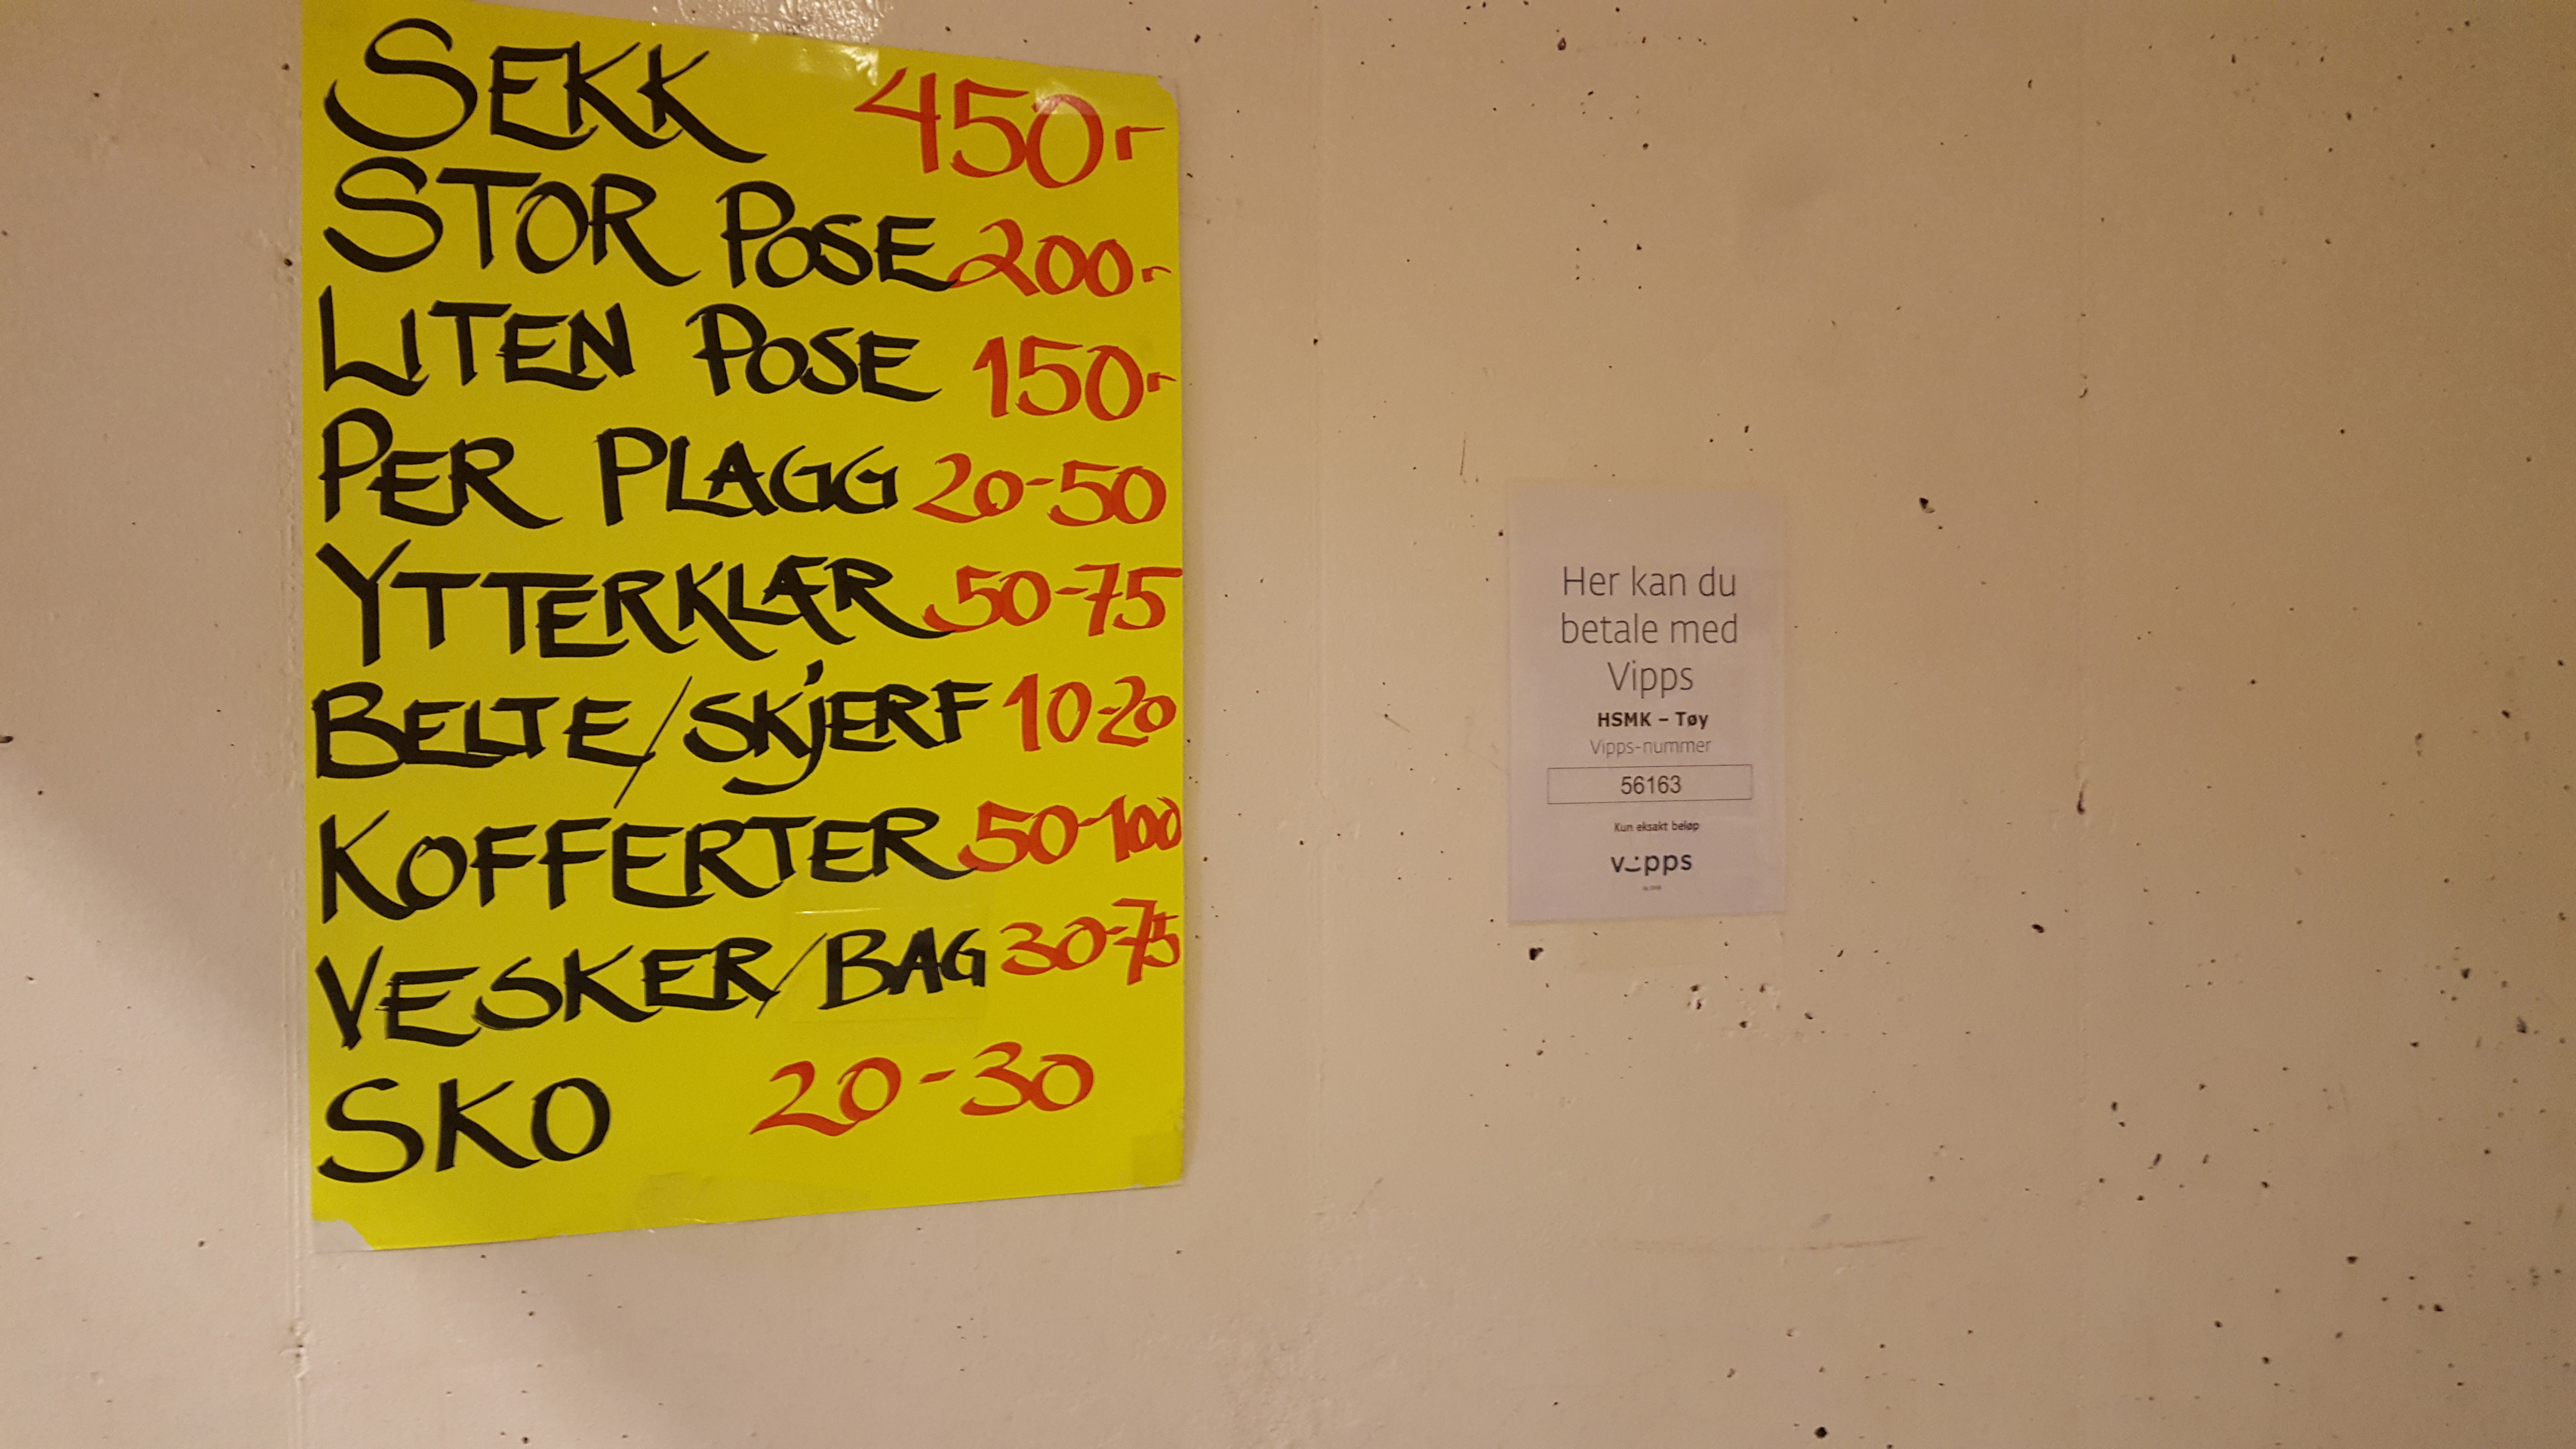 SEKK 450,-
STOR POSE 200,-
LITEN POSE 150,-
PER PLAGG 20-50
YTTERKLÆR 50-75
BELTE/SKJERF 10-20
KOFFERTER 50-100
VESKER/BAG 30-75
SKO 20-30
Her kan du
betale med
Vipps
HSMK – Tøy
Vipps-nummer
56163
Kun eksakt beløp
vipps